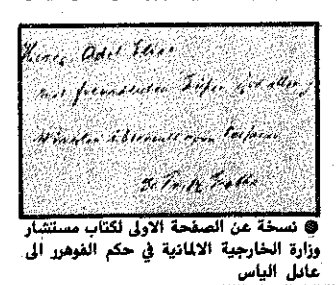 Herrn Adel Elias
mit freundlichen Grüßen und allen
Wünschen überreicht vom Verfasser
Dr Fritz Grobba
● نسخة عن الصفحة الاولى لكتاب مستشار
وزارة الخارجية الالمانية في حكم الفوهرر الى
عادل الياس